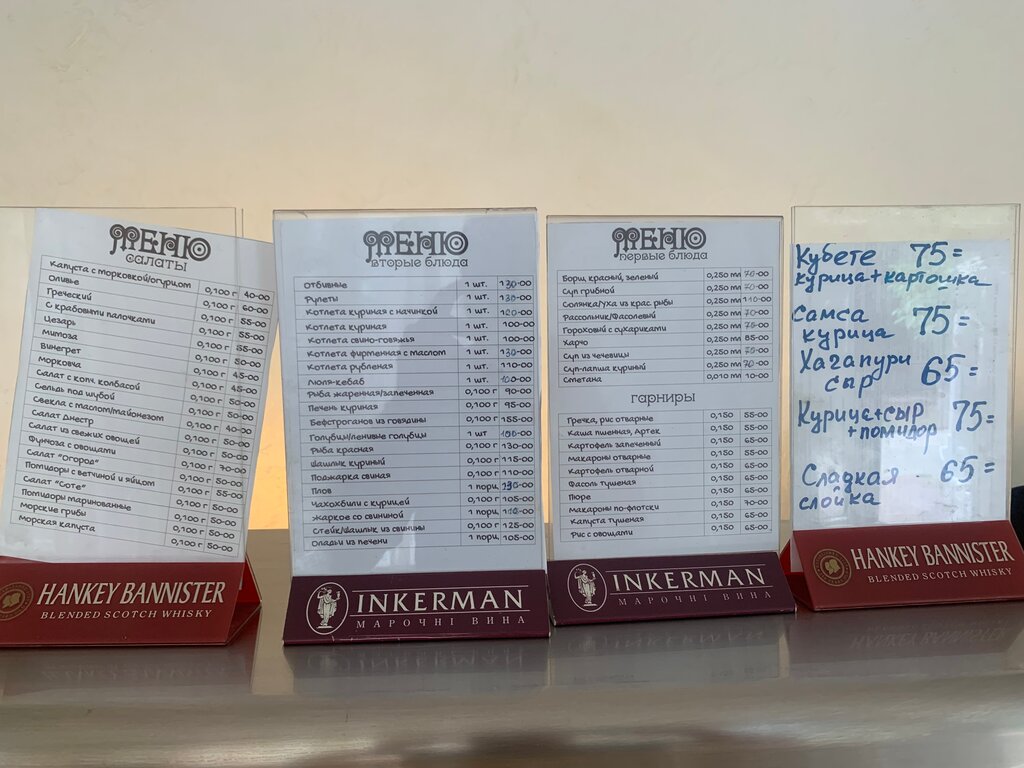 МЕНЮ
салаты
Капуста с морковкой/огурцом 0,100 г 40-00
Оливье 0,100 г 60-00
Греческий 0,100 г 55-00
С крабовыми палочками 0,100 г 55-00
Цезарь 0,100 г 55-00
Мимоза 0,100 г 50-00
Винегрет 0,100 г 45-00
Морковча 0,100 г 45-00
Салат с копч. колбасой 0,100 г 50-00
Сельдь под шубой 0,100 г 50-00
Свекла с маслом/майонезом 0,100 г 40-00
Салат Днестр 0,100 г 50-00
Салат из свежих овощей 0,100 г 50-00
Фунчоза с овощами 0,100 г 70-00
Салат "Огород" 0,100 г 50-00
Помидоры с ветчиной и яйцом 0,100 г 55-00
Салат "Соте" 0,100 г 50-00
Помидоры маринованные 0,100 г 50-00
Морские грибы 0,100 г 50-00
Морская капуста 0,100 г 50-00
HANKEY BANNISTER
BLENDED SCOTCH WHISKY
МЕНЮ
вторые блюда
Отбивные 1 шт. 130-00
Рулеты 1 шт. 130-00
Котлета куриная с начинкой 1 шт. 120-00
Котлета куриная 1 шт. 100-00
Котлета свино-говяжья 1 шт. 100-00
Котлета фирменная с маслом 1 шт. 130-00
Котлета рубленая 1 шт. 110-00
Люля-кебаб 1 шт. 100-00
Рыба жаренная/запеченная 0,100 г 90-00
Печень куриная 0,100 г 95-00
Бефстроганов из говядины 0,100 г 155-00
Голубцы/ленивые голубцы 1 шт 100-00
Рыба красная 0,100 г 130-00
Шашлык куриный 0,100 г 115-00
Поджарка свиная 0,100 г 110-00
Плов 1 порц 130-00
Чахохбили с курицей 0,100 г 105-00
Жаркое со свининой 1 порц 110-00
Стейк/шашлык из свинины 0,100 г 125-00
Оладьи из печени 1 порц 105-00
INKERMAN
МАРОЧНІ ВИНА
МЕНЮ
первые блюда
Борщ красный, зеленый 0,250 мл 70-00
Суп грибной 0,250 мл 70-00
Солянка/уха из крас. рыбы 0,250 мл 110-00
Рассольник/Фасолевый 0,250 мл 70-00
Гороховый с сухариками 0,250 мл 75-00
Харчо 0,250 мл 85-00
Суп из чечевицы 0,250 мл 75-00
Суп-лапша куриный 0,250 мл 70-00
Сметана 0,010 мл 10-00
гарниры
Гречка, рис отварные 0,150 55-00
Каша пшенная, Артек 0,150 55-00
Картофель запеченный 0,150 65-00
Макароны отварные 0,150 55-00
Картофель отварной 0,150 55-00
Фасоль тушеная 0,150 65-00
Пюре 0,150 55-00
Макароны по-флотски 0,150 70-00
Капуста тушеная 0,150 65-00
Рис с овощами 0,150 65-00
INKERMAN
МАРОЧНІ ВИНА
Кубете 75=
курица+картошка
Самса 75=
курица
Хачапури 65=
сыр
Курица+сыр 75=
+помидор
Сладкая 65=
слойка
HANKEY BANNISTER
BLENDED SCOTCH WHISKY